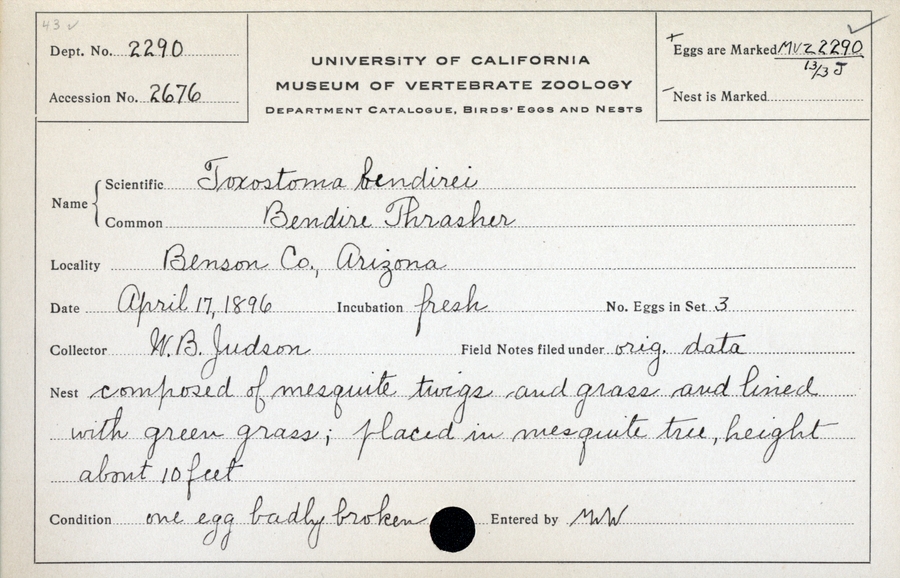 43 ✓
Dept. No. 2290
Accession No. 2676
UNIVERSITY OF CALIFORNIA
MUSEUM OF VERTEBRATE ZOOLOGY
DEPARTMENT CATALOGUE, BIRDS' EGGS AND NESTS
+Eggs are Marked MVZ 2290
13/3 J
-Nest is Marked
Name
Scientific Toxostoma bendirei
Common Bendire Thrasher
Locality Benson Co., Arizona
Date April 17, 1896 Incubation fresh No. Eggs in Set 3
Collector W.B. Judson Field Notes filed under orig. data
Nest composed of mesquite twigs and grass and lined
with green grass; placed in mesquite tree, height
about 10 feet
Condition one egg badly broken Entered by MW